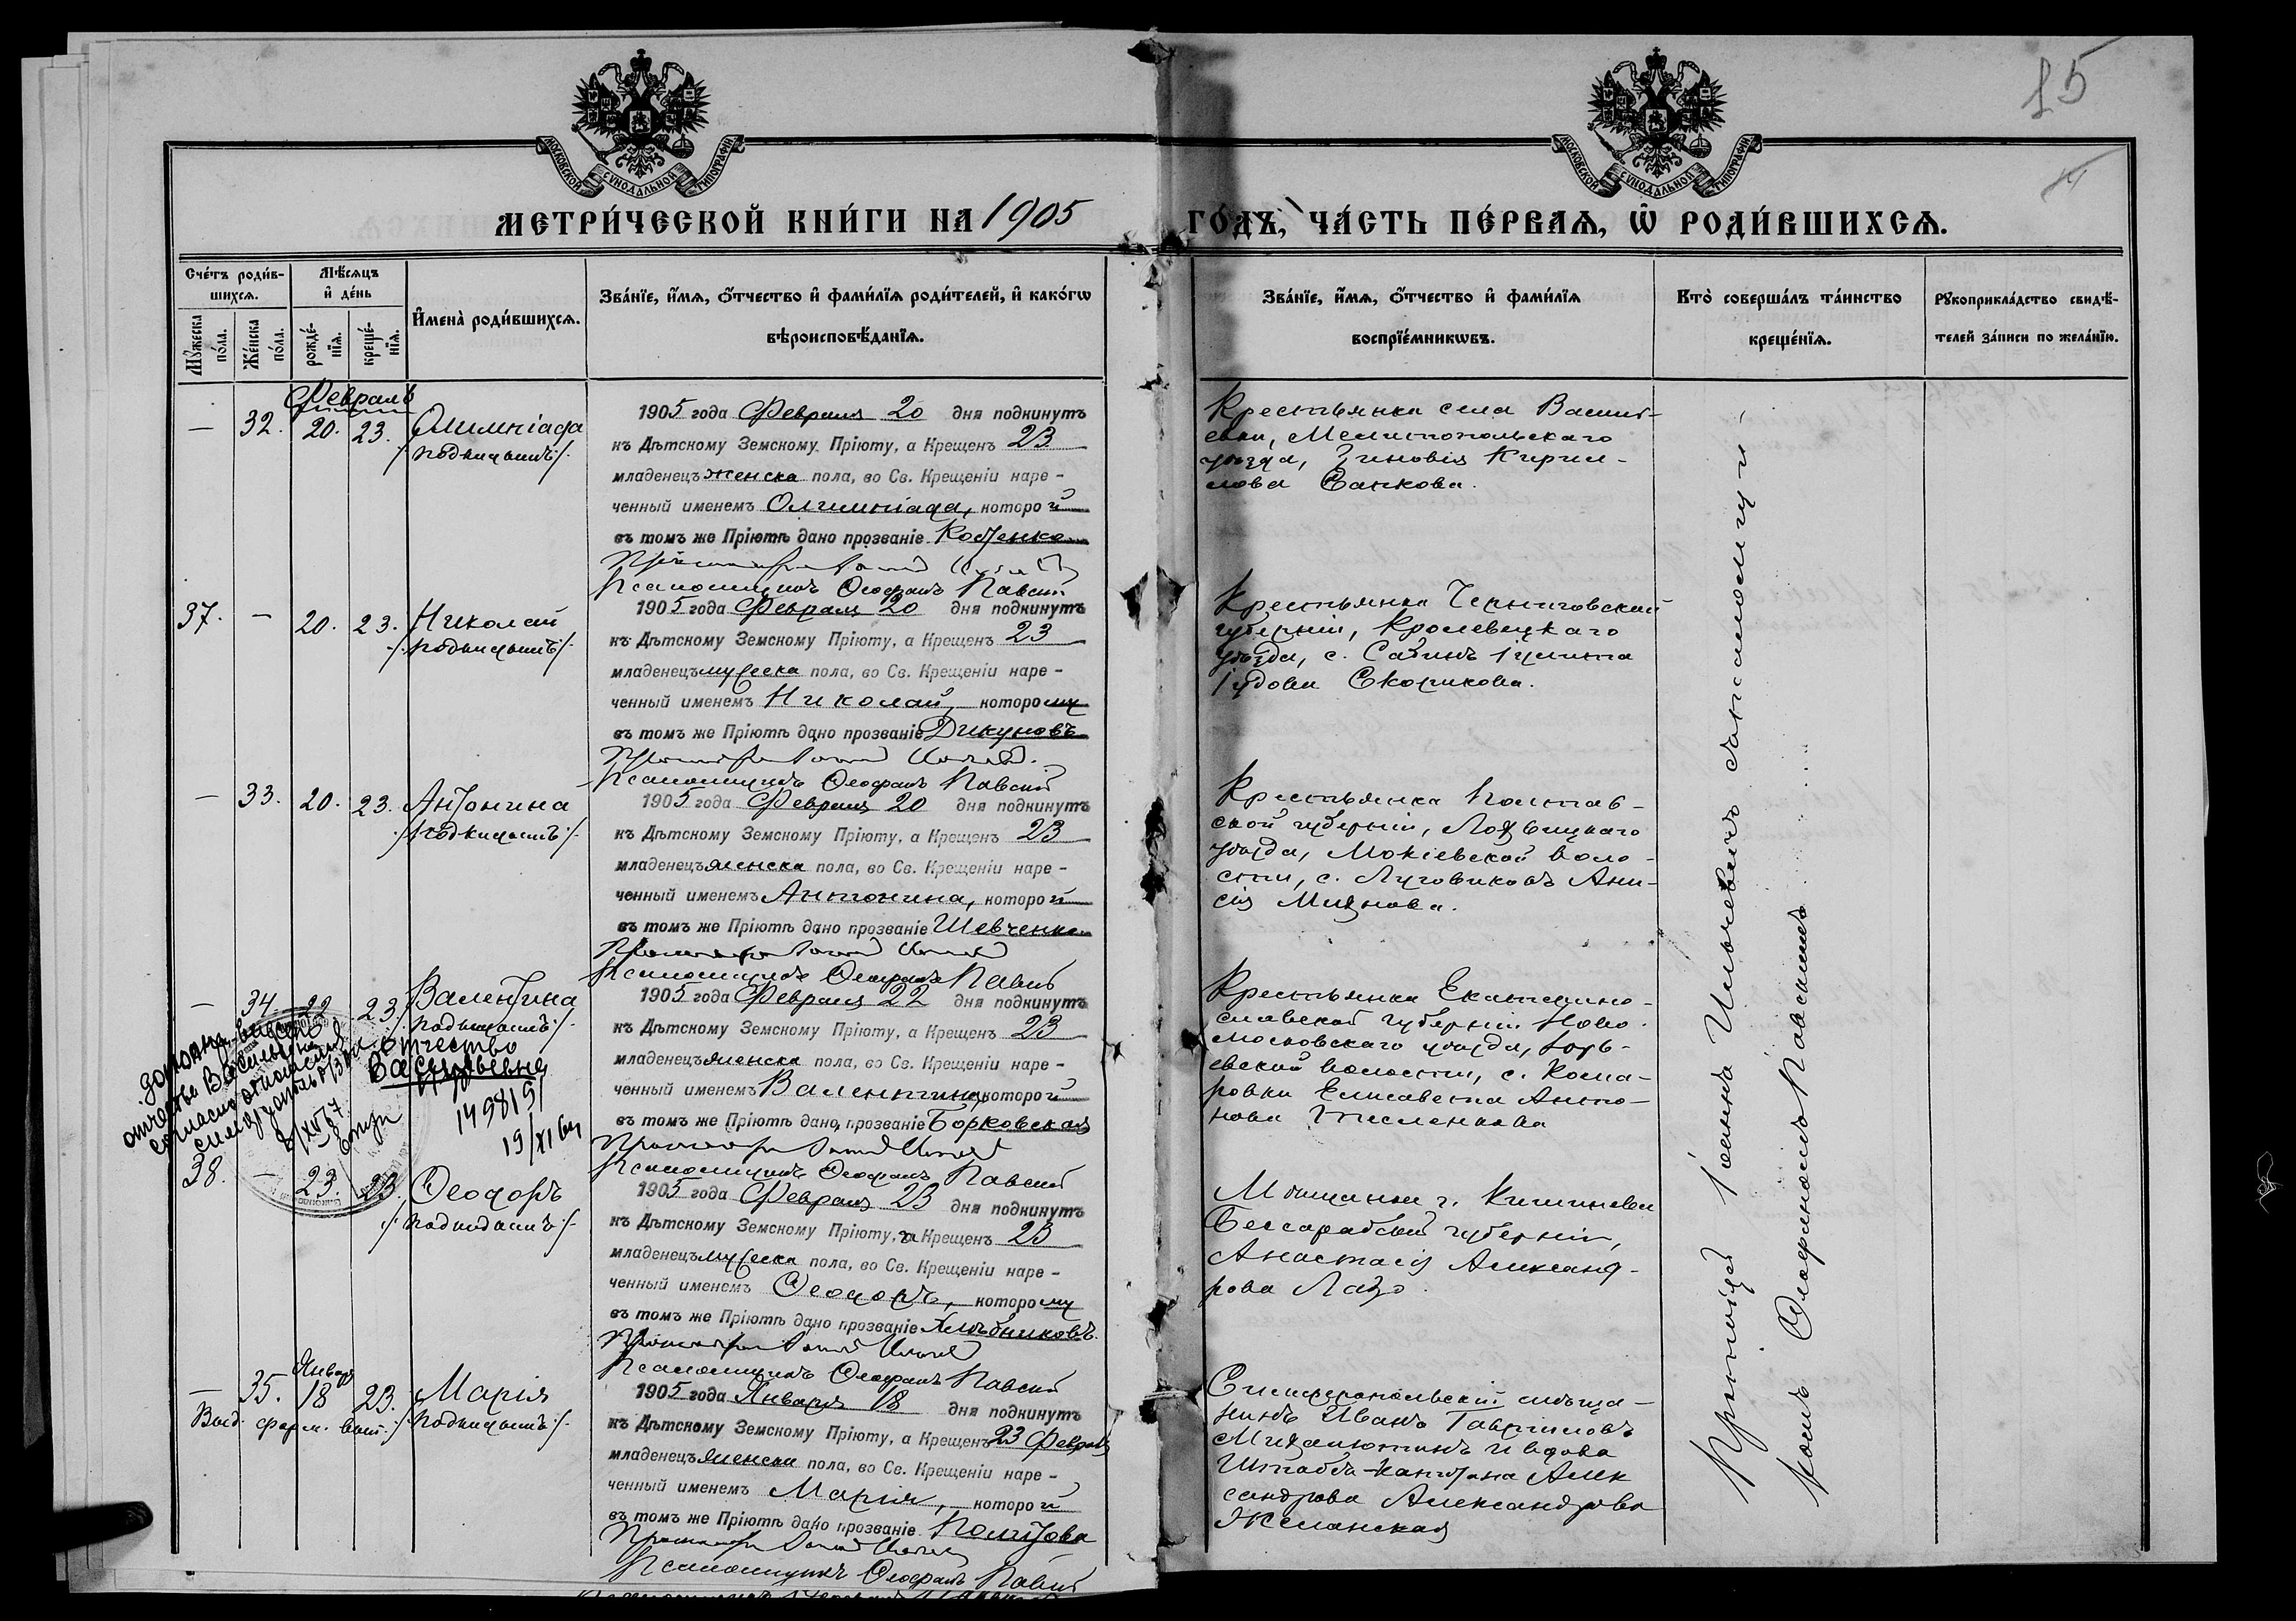 15
МОСКОВСКОЙ СѴНОДАЛЬНОЙ ТИПОГРАФІИ
МОСКОВСКОЙ СѴНОДАЛЬНОЙ ТИПОГРАФІИ
МЕТРИ́ЧЕСКОЙ КНИ́ГИ НА 1905
ГО́ДЪ, ЧА́СТЬ ПЕ́РВАѦ, Ѡ РОДИ́ВШИХСѦ.
Сче́тъ роди́в-
шихсѧ.
Мꙋ́жеска
по́ла.
Же́нска
по́ла.
Мѣ́сѧцъ
и҆ де́нь
рожде́-
нїѧ.
креще́-
нїѧ.
И҆мена̀ роди́вшихсѧ.
Зва́нїе, и҆́мѧ, ѻ҆́тчество и҆ фами́лїѧ роди́телей, и҆ како́гѡ
вѣроисповѣ́данїѧ.
Зва́нїе, и҆́мѧ, ѻ҆́тчество и҆ фами́лїѧ
воспрїе́мникѡвъ.
Кто̀ соверша́лъ та́инство
креще́нїѧ.
Рꙋкоприкла́дство свидѣ́-
телей за́писи по жела́нїю.
Февраль
— 32. 20. 23. Олимпіада
/подкидышъ/.
1905 года Февраля 20 дня подкинутъ
къ Дѣтскому Земскому Пріюту, а Крещенъ 23
младенецъ женска пола, во Св. Крещеніи наре-
ченный именемъ Олимпіада, которой
въ томъ же Пріютѣ дано прозваніе Котенко
Псаломщикъ Ѳеофанъ Павскій
Крестьянка села Васил-
евки, Мелитопольскаго
уѣзда, Зиновія Кирил-
лова Санкова.
37. — 20. 23. Николай
/подкидышъ/.
1905 года Февраля 20 дня подкинутъ
къ Дѣтскому Земскому Пріюту, а Крещенъ 23
младенецъ мужеска пола, во Св. Крещеніи наре-
ченный именемъ Николай, которому
въ томъ же Пріютѣ дано прозваніе Дикуновъ
Псаломщикъ Ѳеофанъ Павскій
Крестьянка Черниговской
губерніи, Кролевецкаго
уѣзда, с.
Скорикова.
— 33. 20. 23. Антонина
/подкидышъ/.
1905 года Февраля 20 дня подкинутъ
къ Дѣтскому Земскому Пріюту, а Крещенъ 23
младенецъ женска пола, во Св. Крещеніи наре-
ченный именемъ Антонина, которой
въ томъ же Пріютѣ дано прозваніе Шевченко
Псаломщикъ Ѳеофанъ Павскій
Крестьянка Полтав-
ской губерніи, Лохвицкаго
уѣзда, Мокіевской воло-
сти, с. Луговиковъ Ани-
сія Михнова.
— 34 22 23. Валентина
/подкидышъ/.
отчество
Васильевна
149819
19/XI 64
1905 года Февраля 22 дня подкинутъ
къ Дѣтскому Земскому Пріюту, а Крещенъ 23
младенецъ женска пола, во Св. Крещеніи наре-
ченный именемъ Валентина, которой
въ томъ же Пріютѣ дано прозваніе Борковская
Псаломщикъ Ѳеофанъ Павскій
Крестьянка Екатерино-
славской губерніи Ново-
московскаго уѣзда,
евской волости, с. Кома-
ровки Елисавета Анто-
нова Тесленкова
38. — 23. 23. Ѳеодоръ
/подкидышъ/.
1905 года Февраля 23 дня подкинутъ
къ Дѣтскому Земскому Пріюту, а Крещенъ 23
младенецъ мужеска пола, во Св. Крещеніи наре-
ченный именемъ Ѳеодоръ, которому
въ томъ же Пріютѣ дано прозваніе Хлѣбниковъ.
Псаломщикъ Ѳеофанъ Павскій
Мѣщанка г. Кишинева
Бессарабской губерніи,
Анастасія Александ-
рова Лазо.
Январь
— 35. 18 23. Марія
/подкидышъ/.
1905 года Января 18 дня подкинутъ
къ Дѣтскому Земскому Пріюту, а Крещенъ 23 Февраля
младенецъ женска пола, во Св. Крещеніи наре-
ченный именемъ Марія, которой
въ томъ же Пріютѣ дано прозваніе
Псаломщикъ Ѳеофанъ Павскій
Симферопольскій мѣща-
нинъ Иванъ Гавриловъ
Михайлютинъ и вдова
Штабсъ-капитана Алек
сандрова Александрова
Жсманская
Протоіерей Іоаннъ Ильичевичъ съ псаломщи-
комъ Ѳеофаномъ Павскимъ